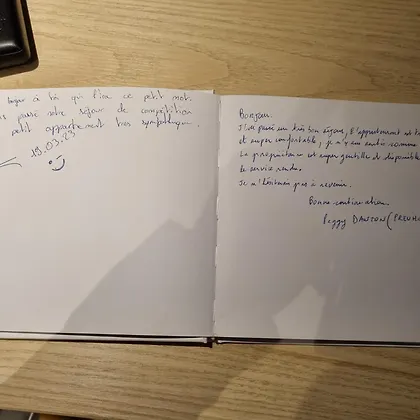 à toi qui lira ce petit mot.
passé notre séjour de compétition
petit appartement très sympathique.
19.03.23
Bonjour.
J'ai passé un très bon séjour, l'appartement est
et super confortable, je m'y suis sentie comme
La propriétaire est super gentille et disponible
le service rendu.
Je n'hésiterais pas à revenir.
Bonne continuation
Peggy DANTON (